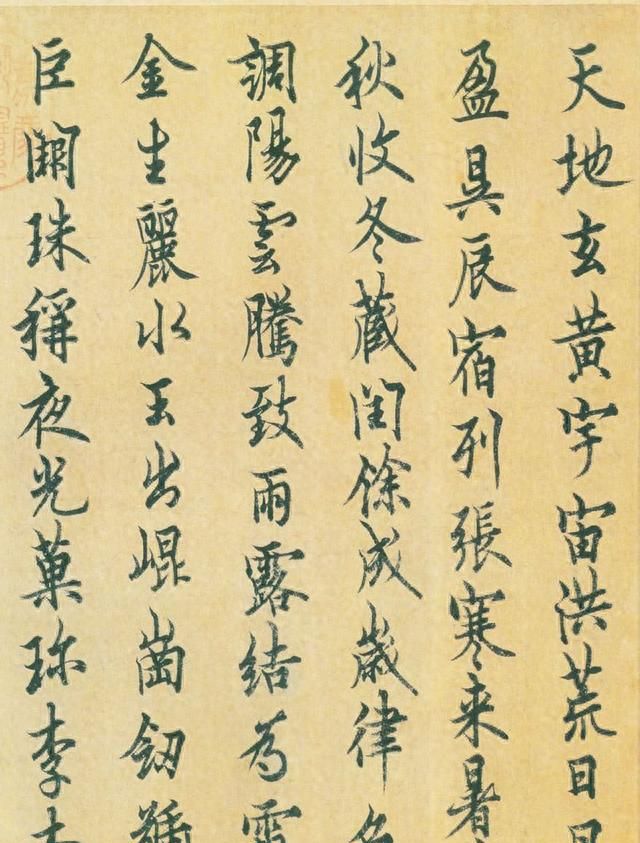 天地玄黄宇宙洪荒日
盈昃辰宿列張寒来暑
秋收冬蔵閏餘成歲律
調陽雲騰致雨露結為
金生麗水玉出崐崗劒
巨闕珠稱夜光菓珎李